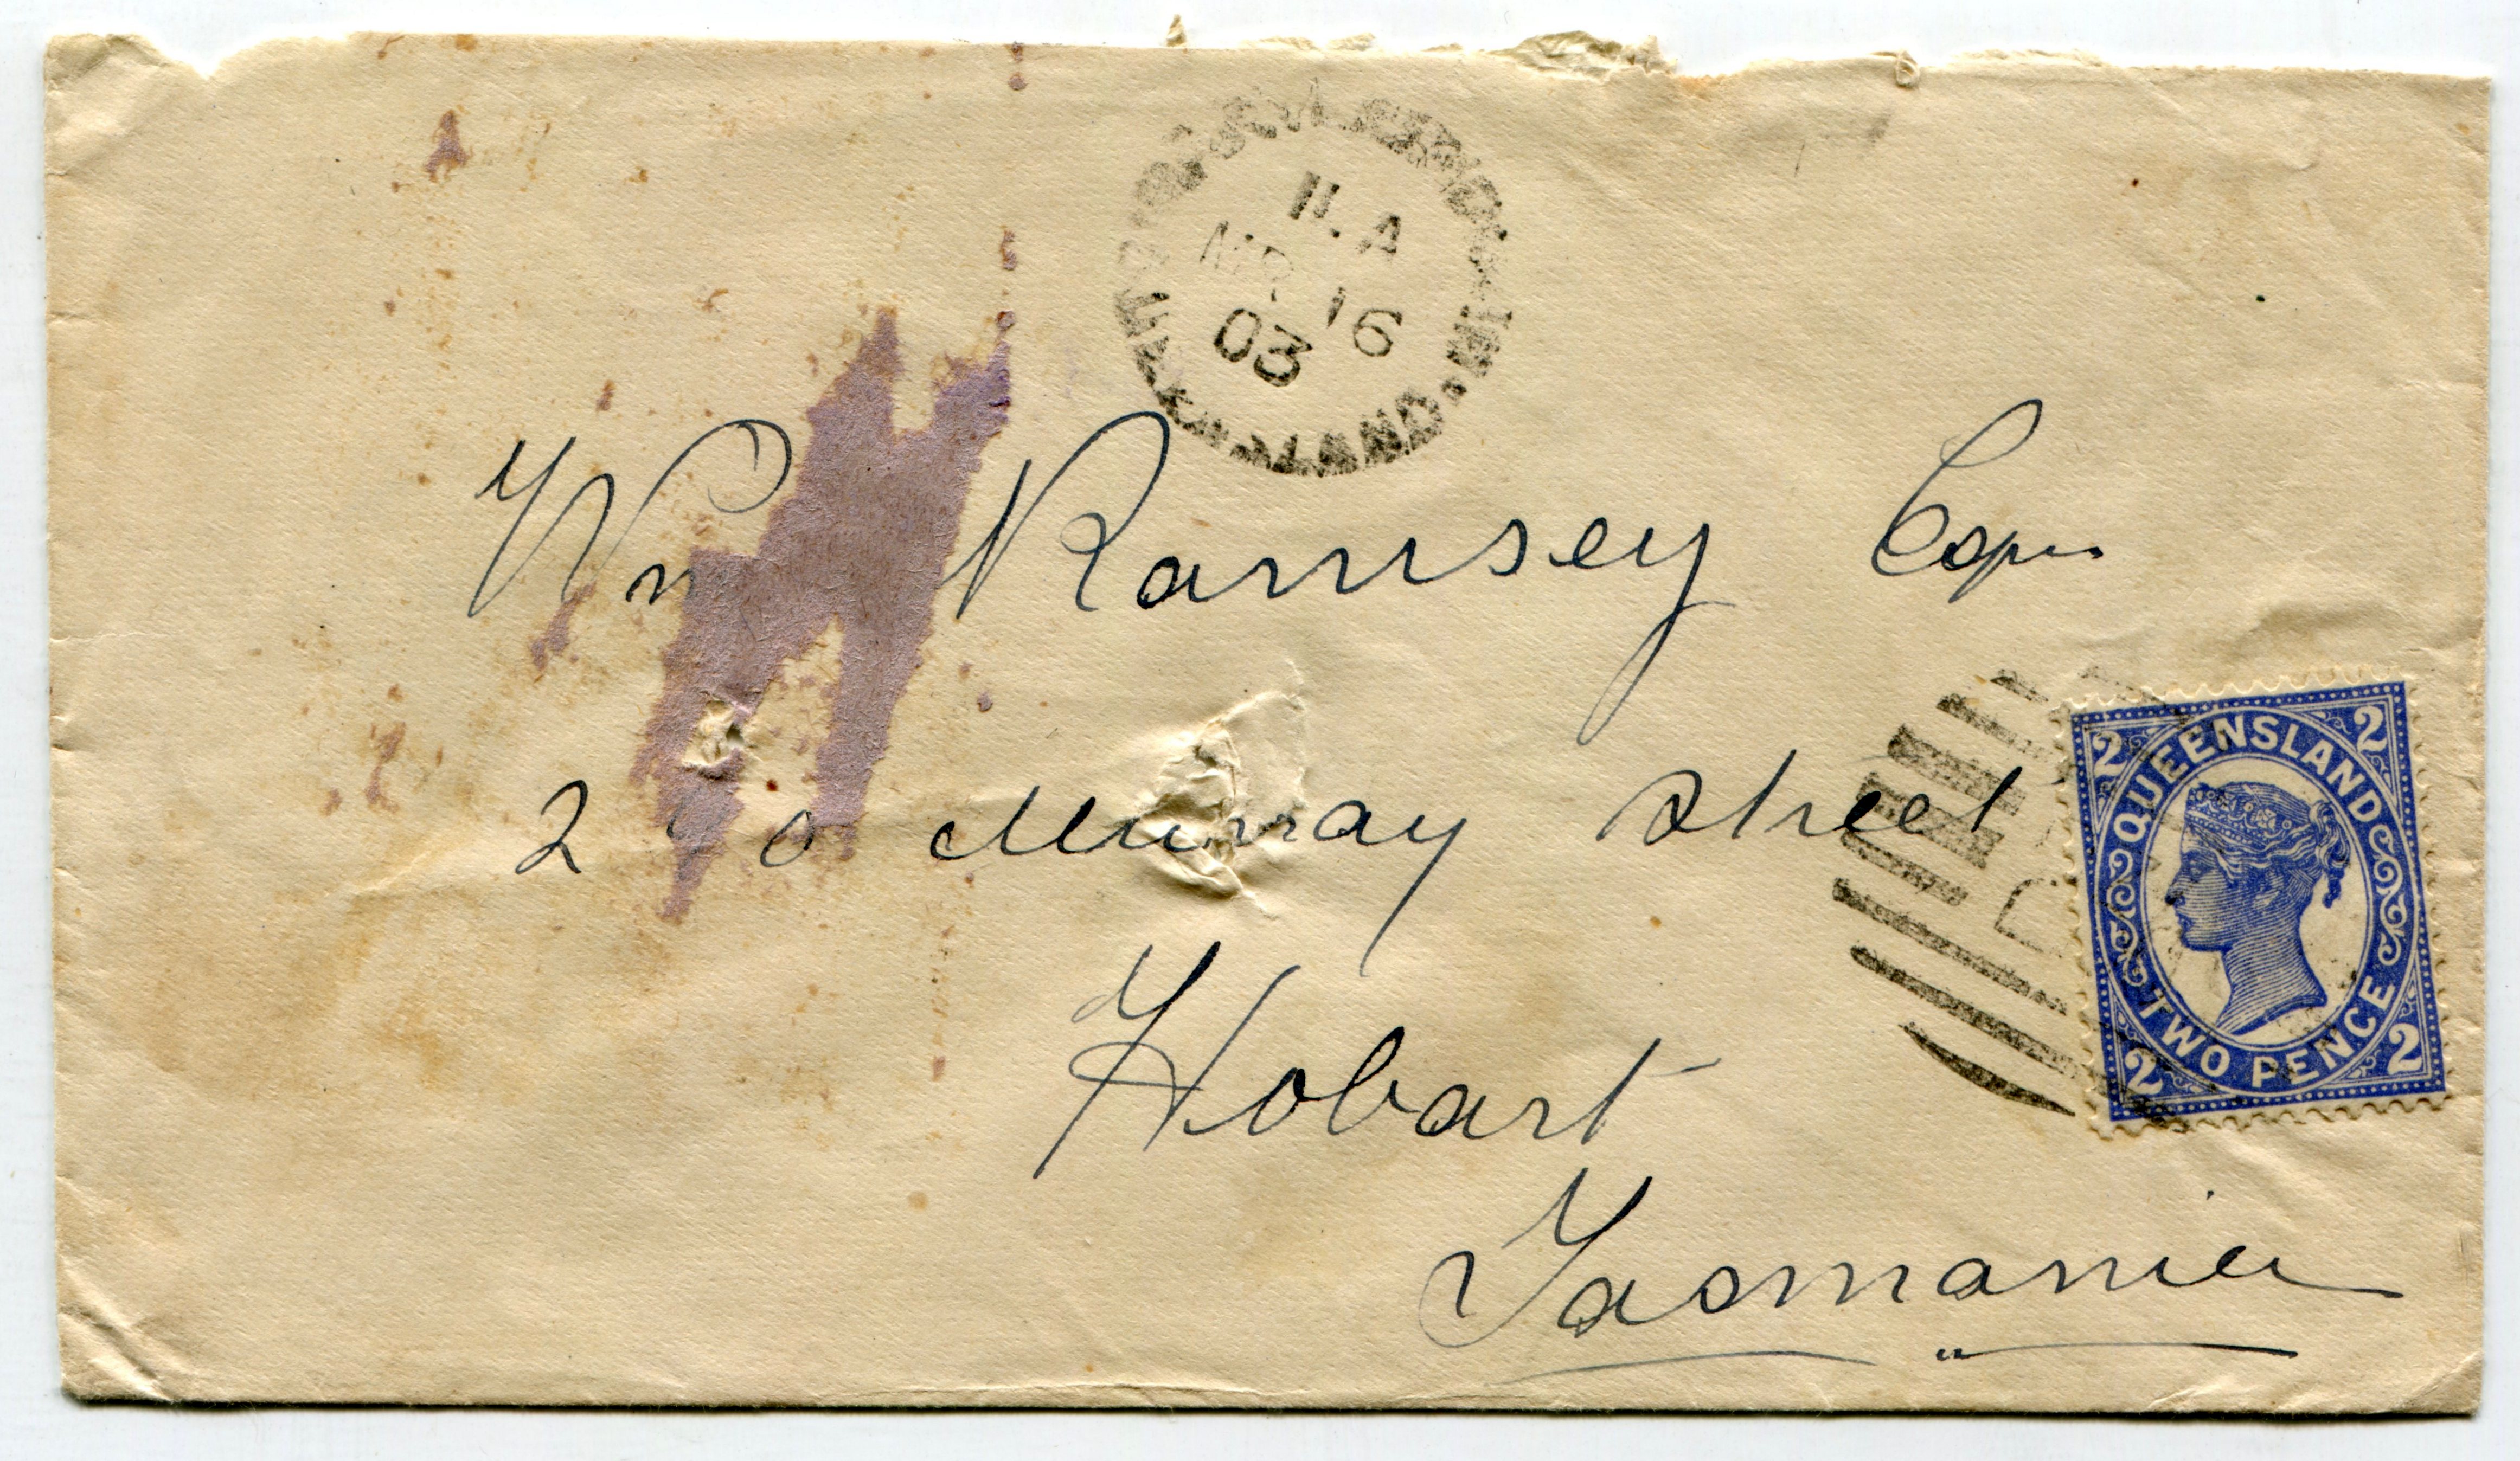 11. A
MR 16
03
QUEENSLAND
Wm Ramsey Esqr
2 0 Murray Street
Hobart
Tasmania
2 QUEENSLAND 2
2 TWO PENCE 2